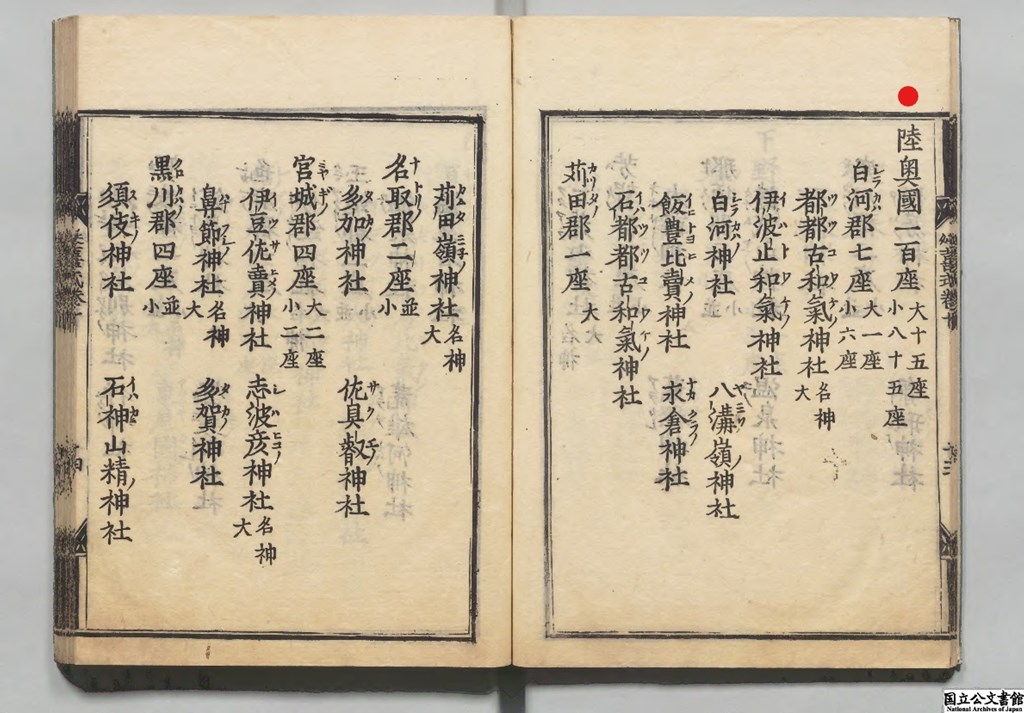 陸奥國一百座 大十五座 小八十五座
白河郡七座 大一座 小六座
都都古和氣神社 名神 大
伊波止和氣神社
白河神社 八溝嶺神社
飯豊比賣神社 永倉神社
石都都古和氣神社
苅田郡一座 大
苅田嶺神社 名神 大
名取郡二座 並 小
多加神社 佐具叡神社
宮城郡四座 大二座 小二座
伊豆佐賣神社 志波彦神社 名神 大
鼻節神社 名神 大 多賀神社
黒川郡四座 並 小
須伎神社 石神山精神社
国立公文書館
National Archives of Japan